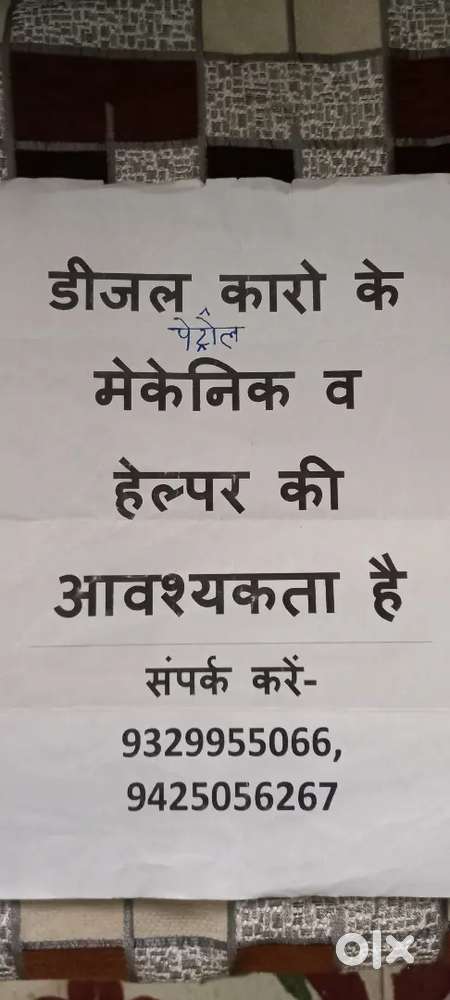 डीजल ^ कारो के
पेट्रोल
मेकेनिक व
हेल्पर की
आवश्यकता है
संपर्क करें-
9329955066,
9425056267
olx